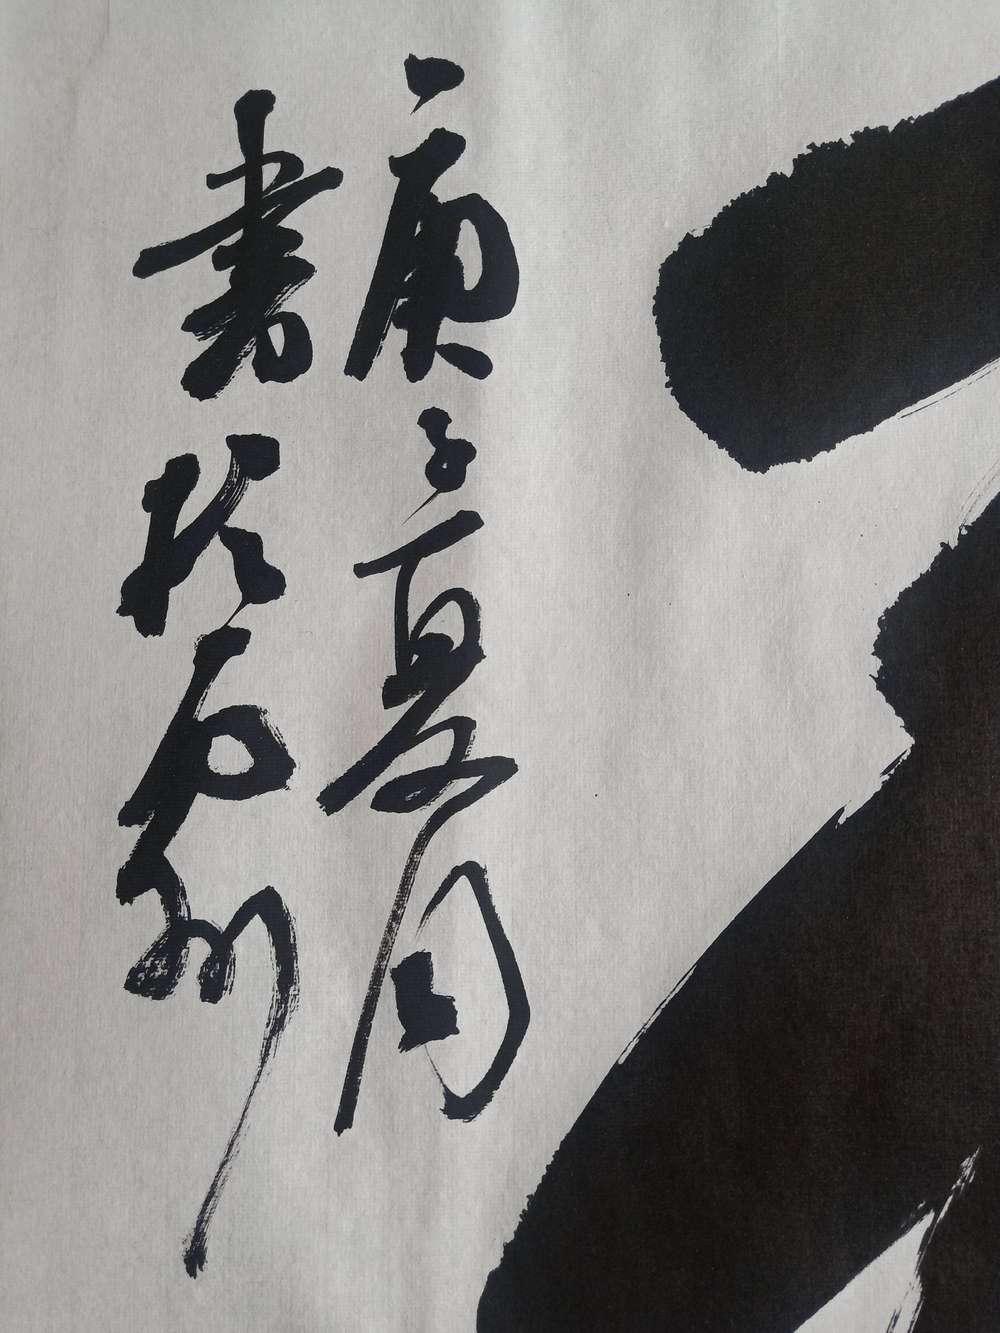 庚子夏月
書於石州